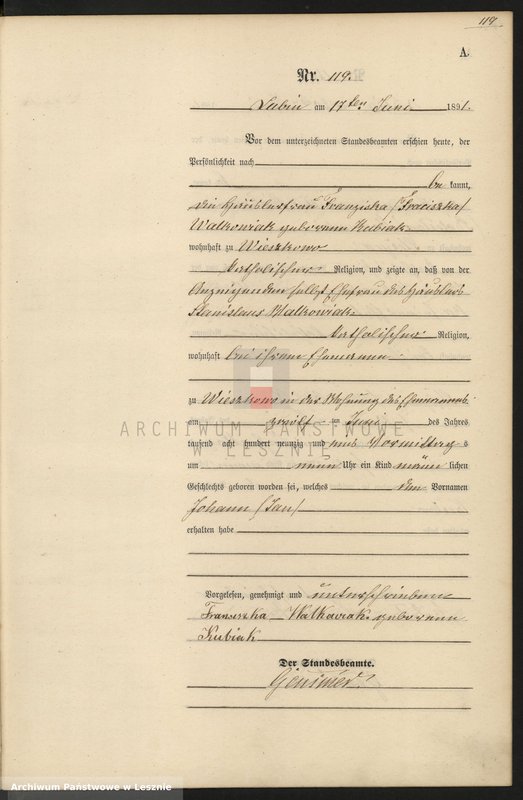 119
A.
Nr. 119.
Lubin am 17ten Juni 1891.
Vor dem unterzeichneten Standesbeamten erschien heute, der
Persönlichkeit nach
be kannt,
die Häuslerfrau Franziska /Fraciszka/
Walkowiak geborene Kubiak
wohnhaft zu Wieszkowo
katholischer Religion, und zeigte an, daß von der
Anzeigenden selbst Ehefrau des Häuslers
Stanislaus Walkowiak
katholischer Religion,
wohnhaft bei ihrem Ehemanne
zu Wieszkowo in der Wohnung des Ehemannes
am zwölf ten Juni des Jahres
tausend acht hundert neunzig und eins Vormittag s
um neun Uhr ein Kind männ lichen
Geschlechts geboren worden sei, welches den Vornamen
Johann /Jan/
erhalten habe
Vorgelesen, genehmigt und unterschrieben
Franciszka Walkowiak geborene
Kubiak
Der Standesbeamte.
ARCHIWUM PAŃSTWOWE
W LESZNIE
Archiwum Państwowe w Lesznie